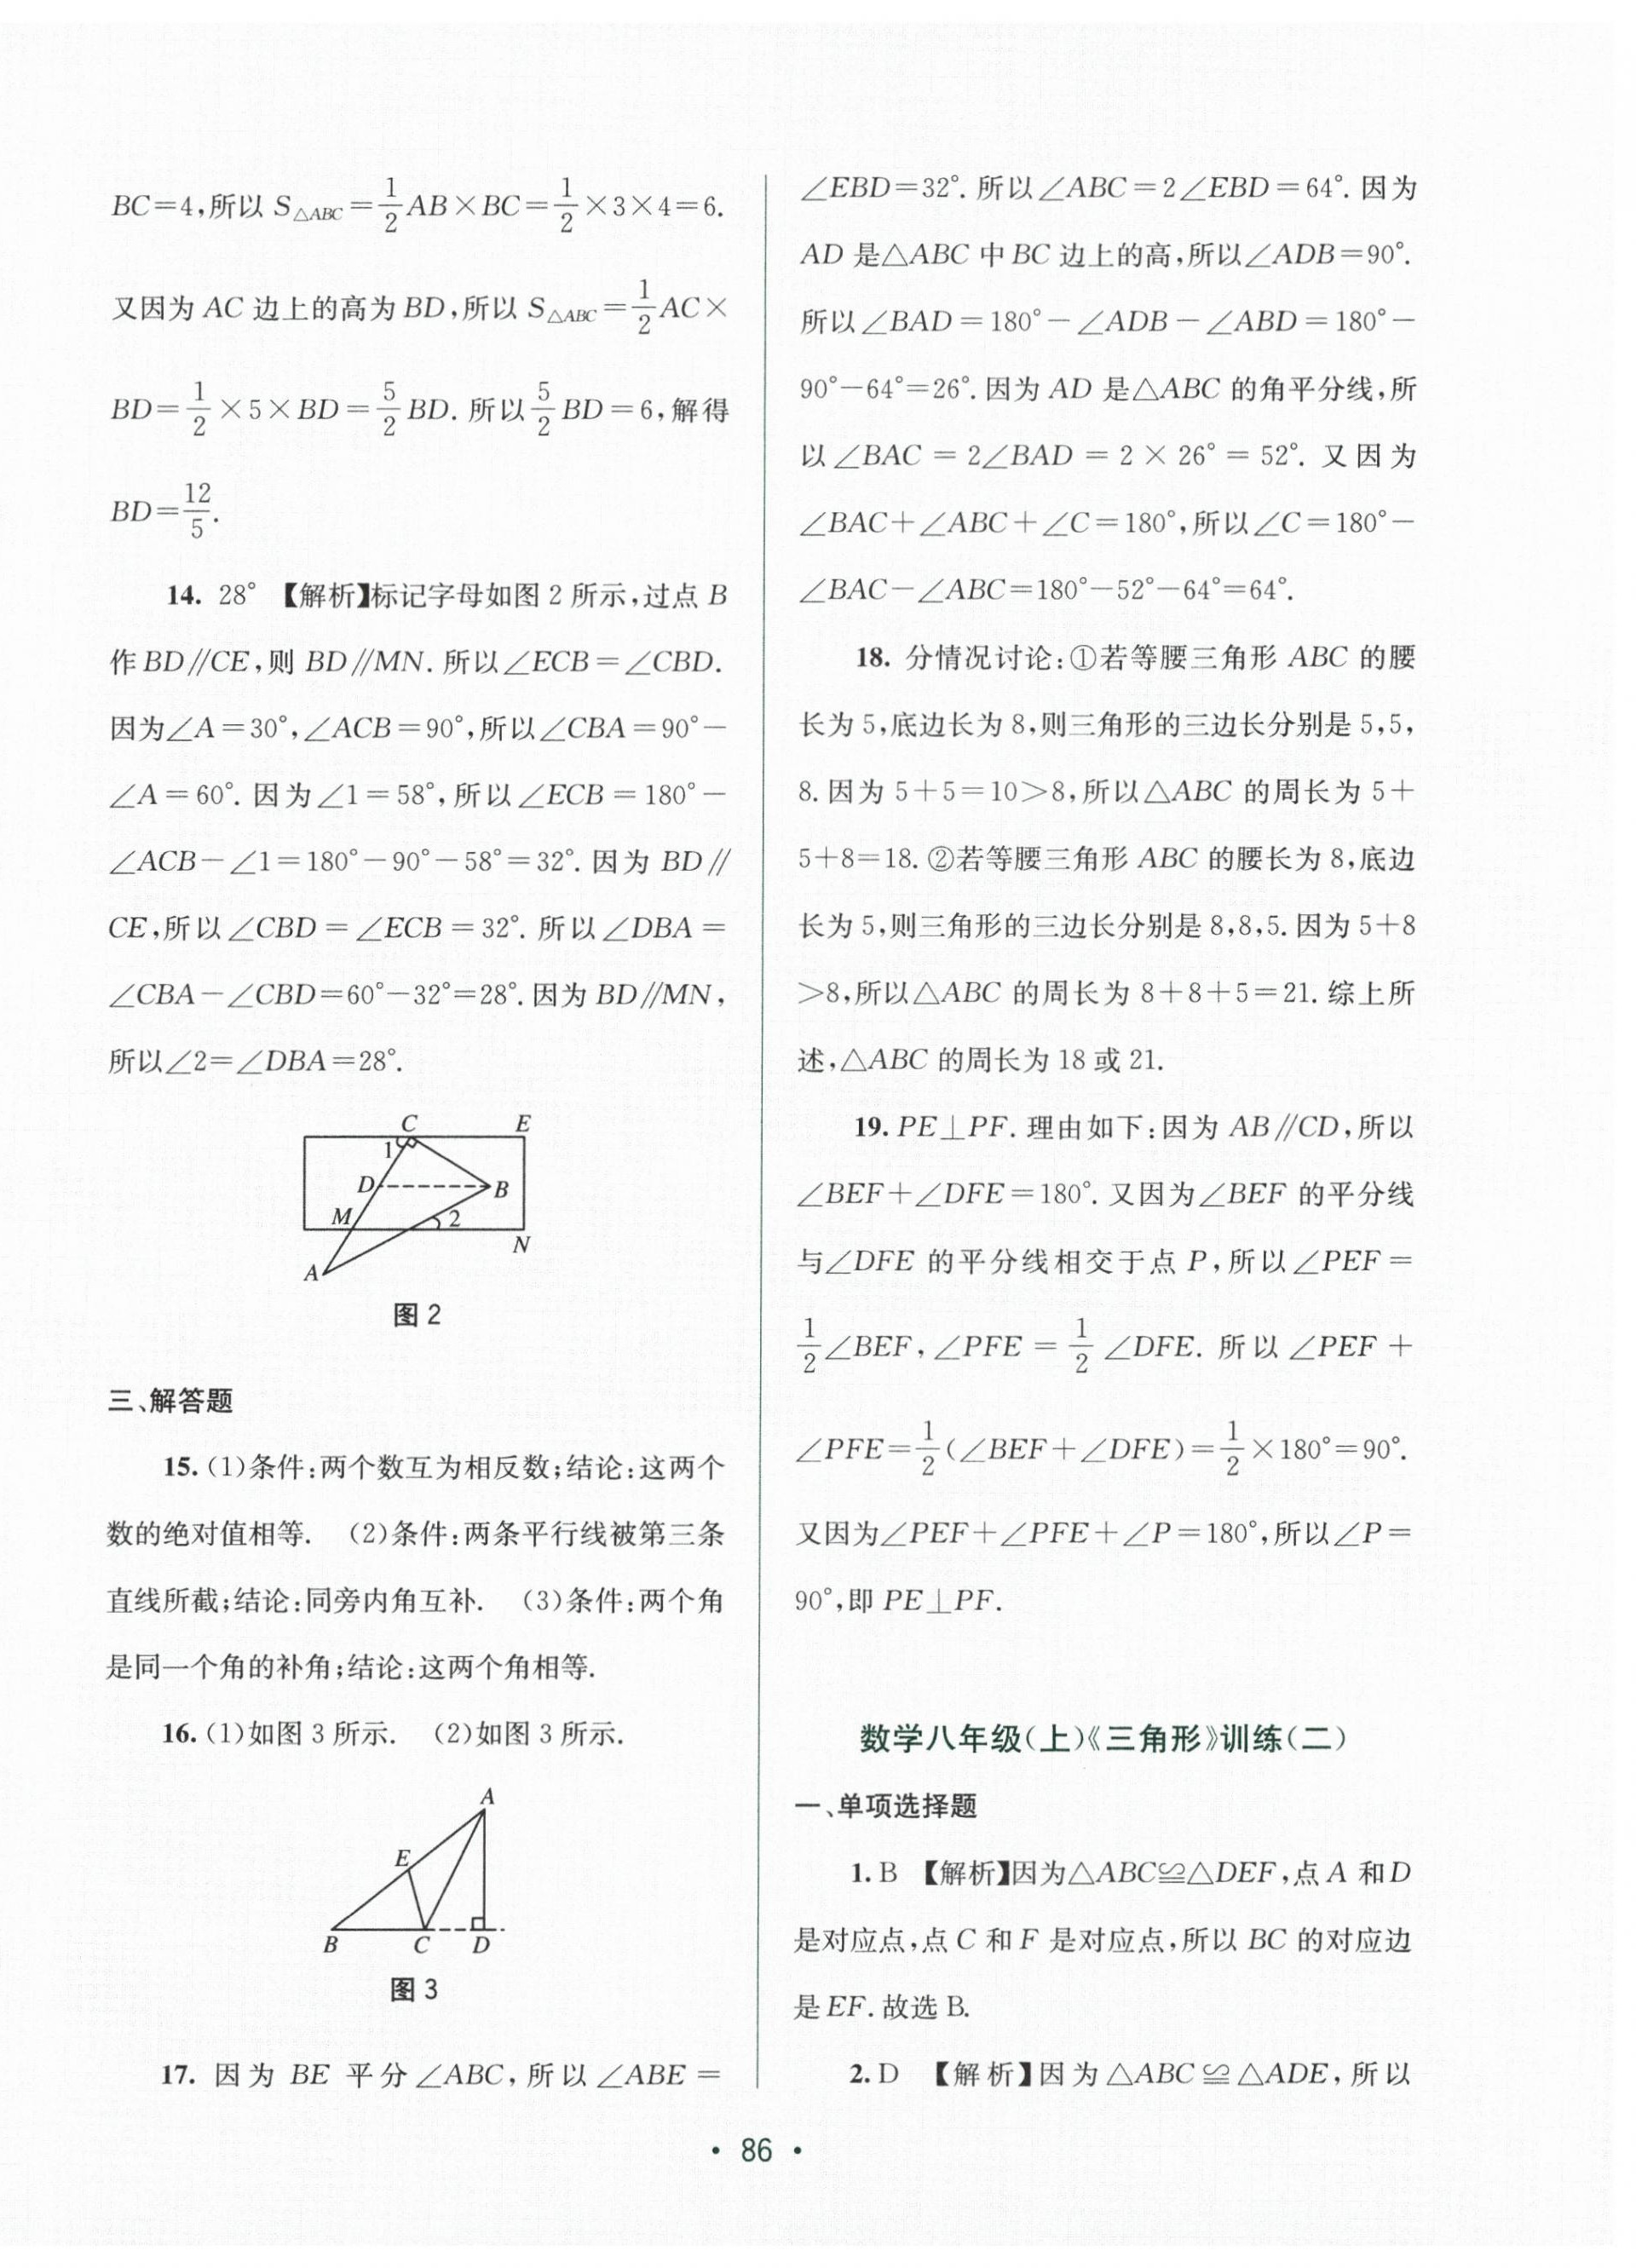 BC=4,所以 S△ABC=1/2 AB×BC=1/2×3×4=6.
又因为 AC 边上的高为 BD,所以 S△ABC=1/2 AC×
BD=1/2×5×BD=5/2 BD. 所以 5/2 BD=6,解得
BD=12/5.
14. 28° 【解析】标记字母如图 2 所示,过点 B
作 BD∥CE,则 BD∥MN. 所以∠ECB=∠CBD.
因为∠A=30°,∠ACB=90°,所以∠CBA=90°-
∠A=60°. 因为∠1=58°,所以∠ECB=180°-
∠ACB-∠1=180°-90°-58°=32°. 因为 BD∥
CE,所以∠CBD=∠ECB=32°. 所以∠DBA=
∠CBA-∠CBD=60°-32°=28°. 因为 BD∥MN,
所以∠2=∠DBA=28°.
C E
1
D B
M 2
N
A
图 2
三、解答题
15. (1)条件:两个数互为相反数;结论:这两个
数的绝对值相等. (2)条件:两条平行线被第三条
直线所截;结论:同旁内角互补. (3)条件:两个角
是同一个角的补角;结论:这两个角相等.
16. (1)如图 3 所示. (2)如图 3 所示.
A
E
B C D
图 3
17. 因为 BE 平分∠ABC,所以∠ABE=
∠EBD=32°. 所以∠ABC=2∠EBD=64°. 因为
AD 是△ABC 中 BC 边上的高,所以∠ADB=90°.
所以∠BAD=180°-∠ADB-∠ABD=180°-
90°-64°=26°. 因为 AD 是△ABC 的角平分线,所
以∠BAC=2∠BAD=2×26°=52°. 又因为
∠BAC+∠ABC+∠C=180°,所以∠C=180°-
∠BAC-∠ABC=180°-52°-64°=64°.
18. 分情况讨论:①若等腰三角形 ABC 的腰
长为 5,底边长为 8,则三角形的三边长分别是 5,5,
8. 因为 5+5=10>8,所以△ABC 的周长为 5+
5+8=18. ②若等腰三角形 ABC 的腰长为 8,底边
长为 5,则三角形的三边长分别是 8,8,5. 因为 5+8
>8,所以△ABC 的周长为 8+8+5=21. 综上所
述,△ABC 的周长为 18 或 21.
19. PE⊥PF. 理由如下:因为 AB∥CD,所以
∠BEF+∠DFE=180°. 又因为∠BEF 的平分线
与∠DFE 的平分线相交于点 P,所以∠PEF=
1/2∠BEF,∠PFE=1/2∠DFE. 所以∠PEF+
∠PFE=1/2(∠BEF+∠DFE)=1/2×180°=90°.
又因为∠PEF+∠PFE+∠P=180°,所以∠P=
90°,即 PE⊥PF.
数学八年级(上)《三角形》训练(二)
一、单项选择题
1. B 【解析】因为△ABC≌△DEF,点 A 和 D
是对应点,点 C 和 F 是对应点,所以 BC 的对应边
是 EF. 故选 B.
2. D 【解析】因为△ABC≌△ADE,所以
• 86 •